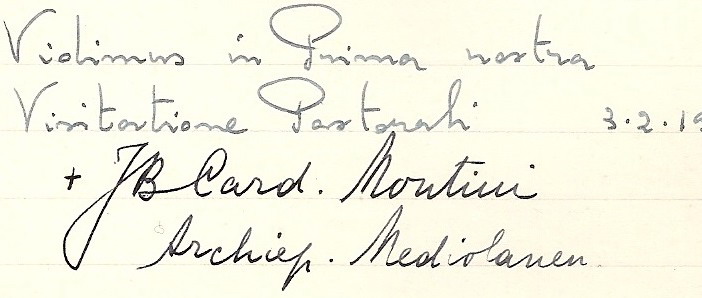 Vidimus in Prima nostra
Visitatione Pastorali 3.2.19
+ JB Card. Montini
Archiep. Mediolanen.